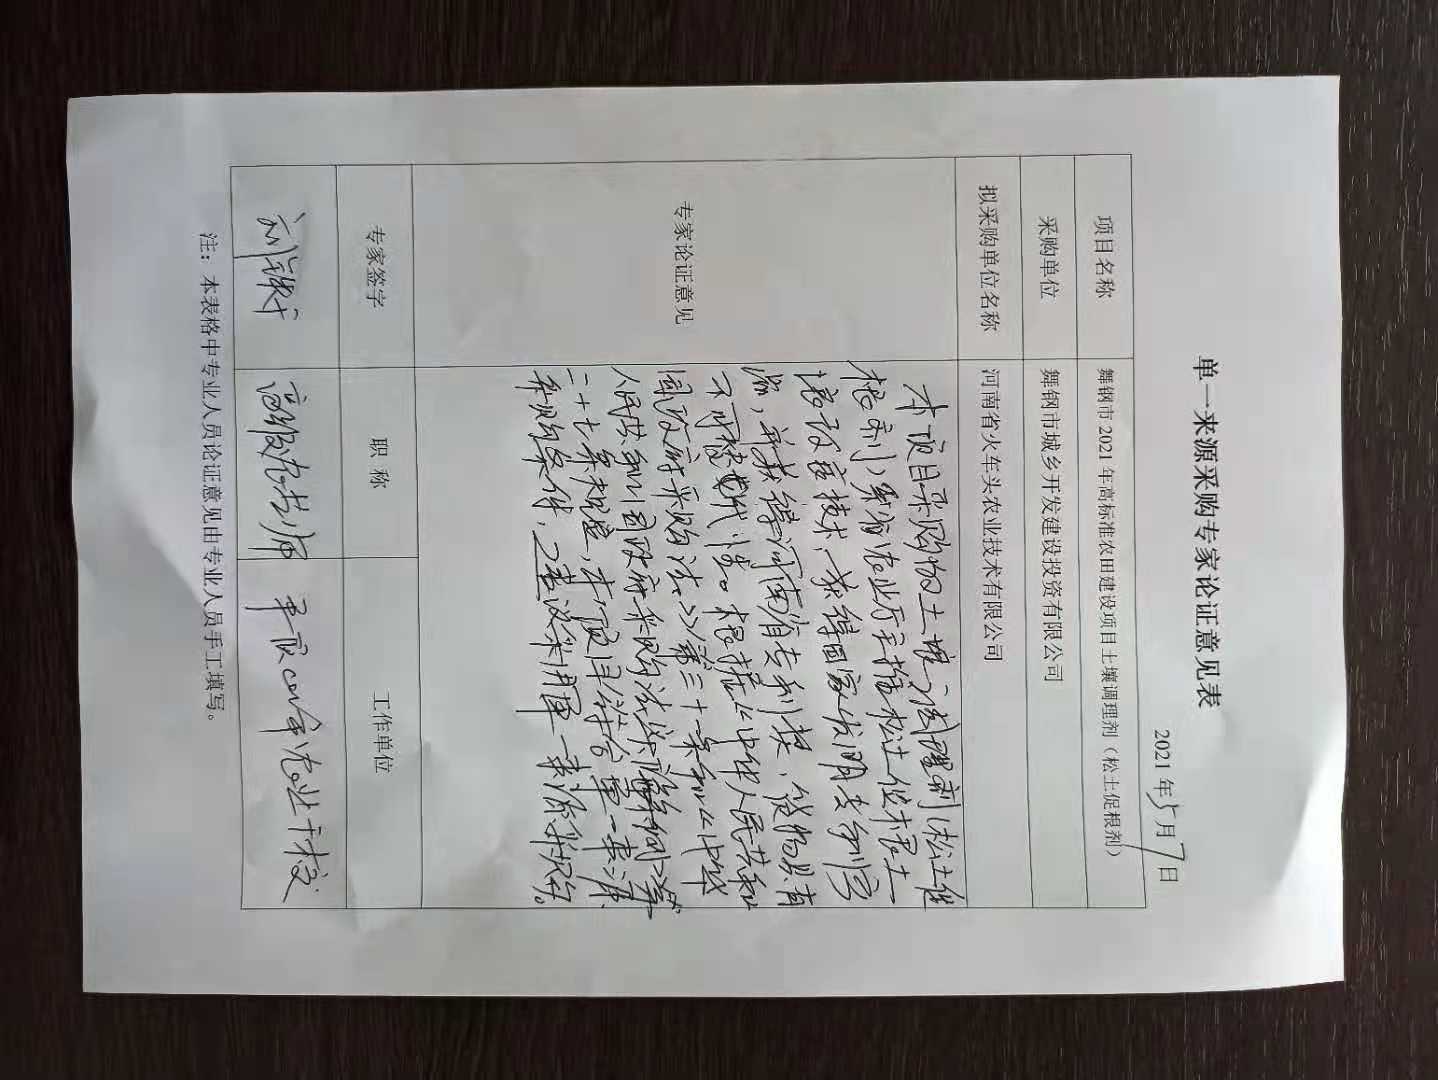 单一来源采购专家论证意见表
2021年5月7日
项目名称 舞钢市2021年高标准农田建设项目土壤调理剂（松土促根剂）
采购单位 舞钢市城乡开发建设投资有限公司
拟采购单位名称 河南省火车头农业技术有限公司
专家论证意见
本项目采购的土壤调理剂(松土促
根剂)系省农业厅主推松土促根土
壤改良技术，获得国家发明专利
，并获得河南省专利奖，货物具有
不可替代性。根据《中华人民共和
国政府采购法》第三十一条和《中华
人民共和国政府采购法实施条例》第
二十七条规定，本项目符合单一来源
采购条件，建议采用单一来源采购。
专家签字 职称 工作单位
刘 高级农艺师 平顶山市农业干校
注：本表格中专业人员论证意见由专业人员手工填写。